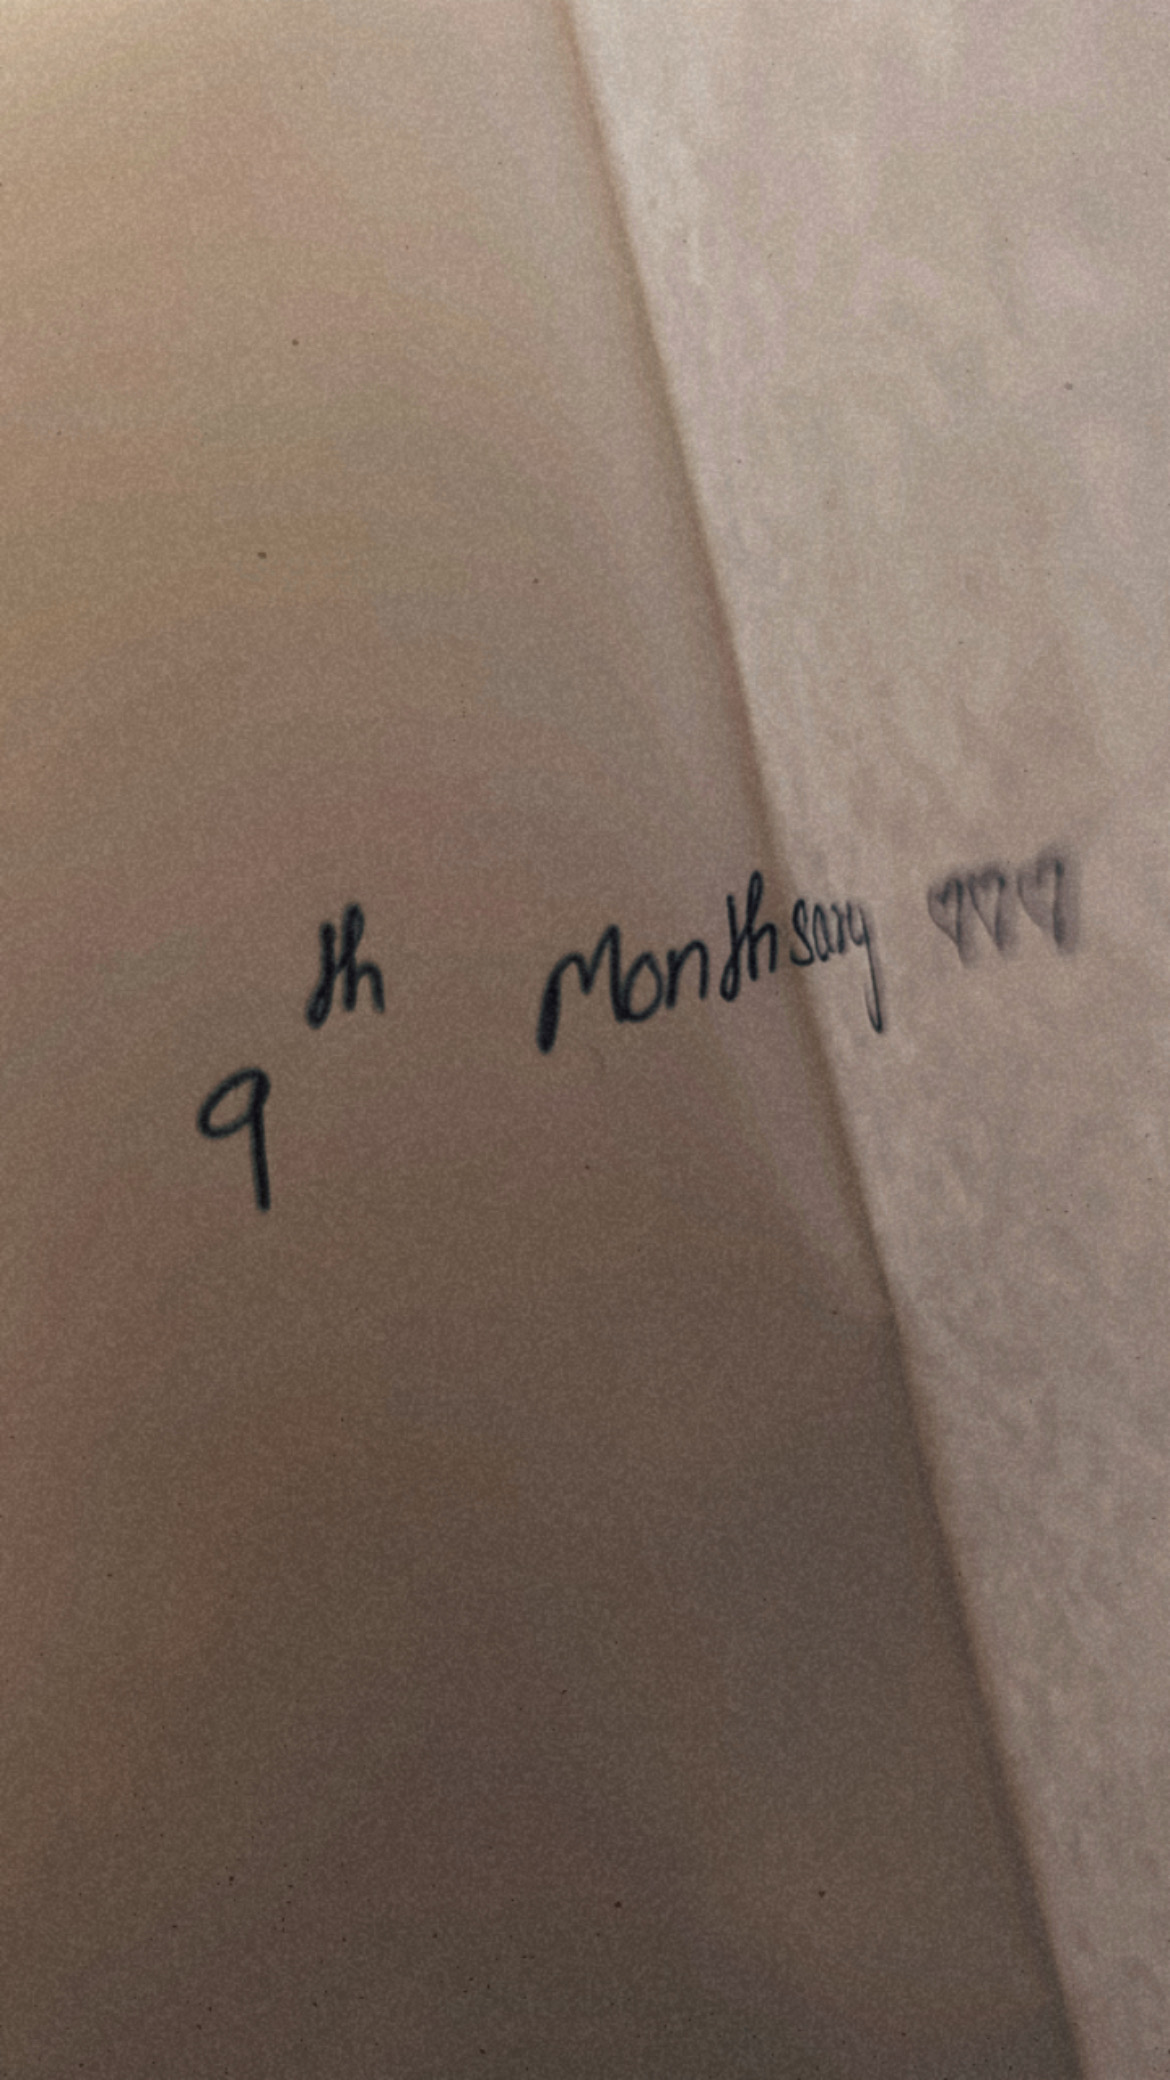 9th Monthsary ♡♡♡